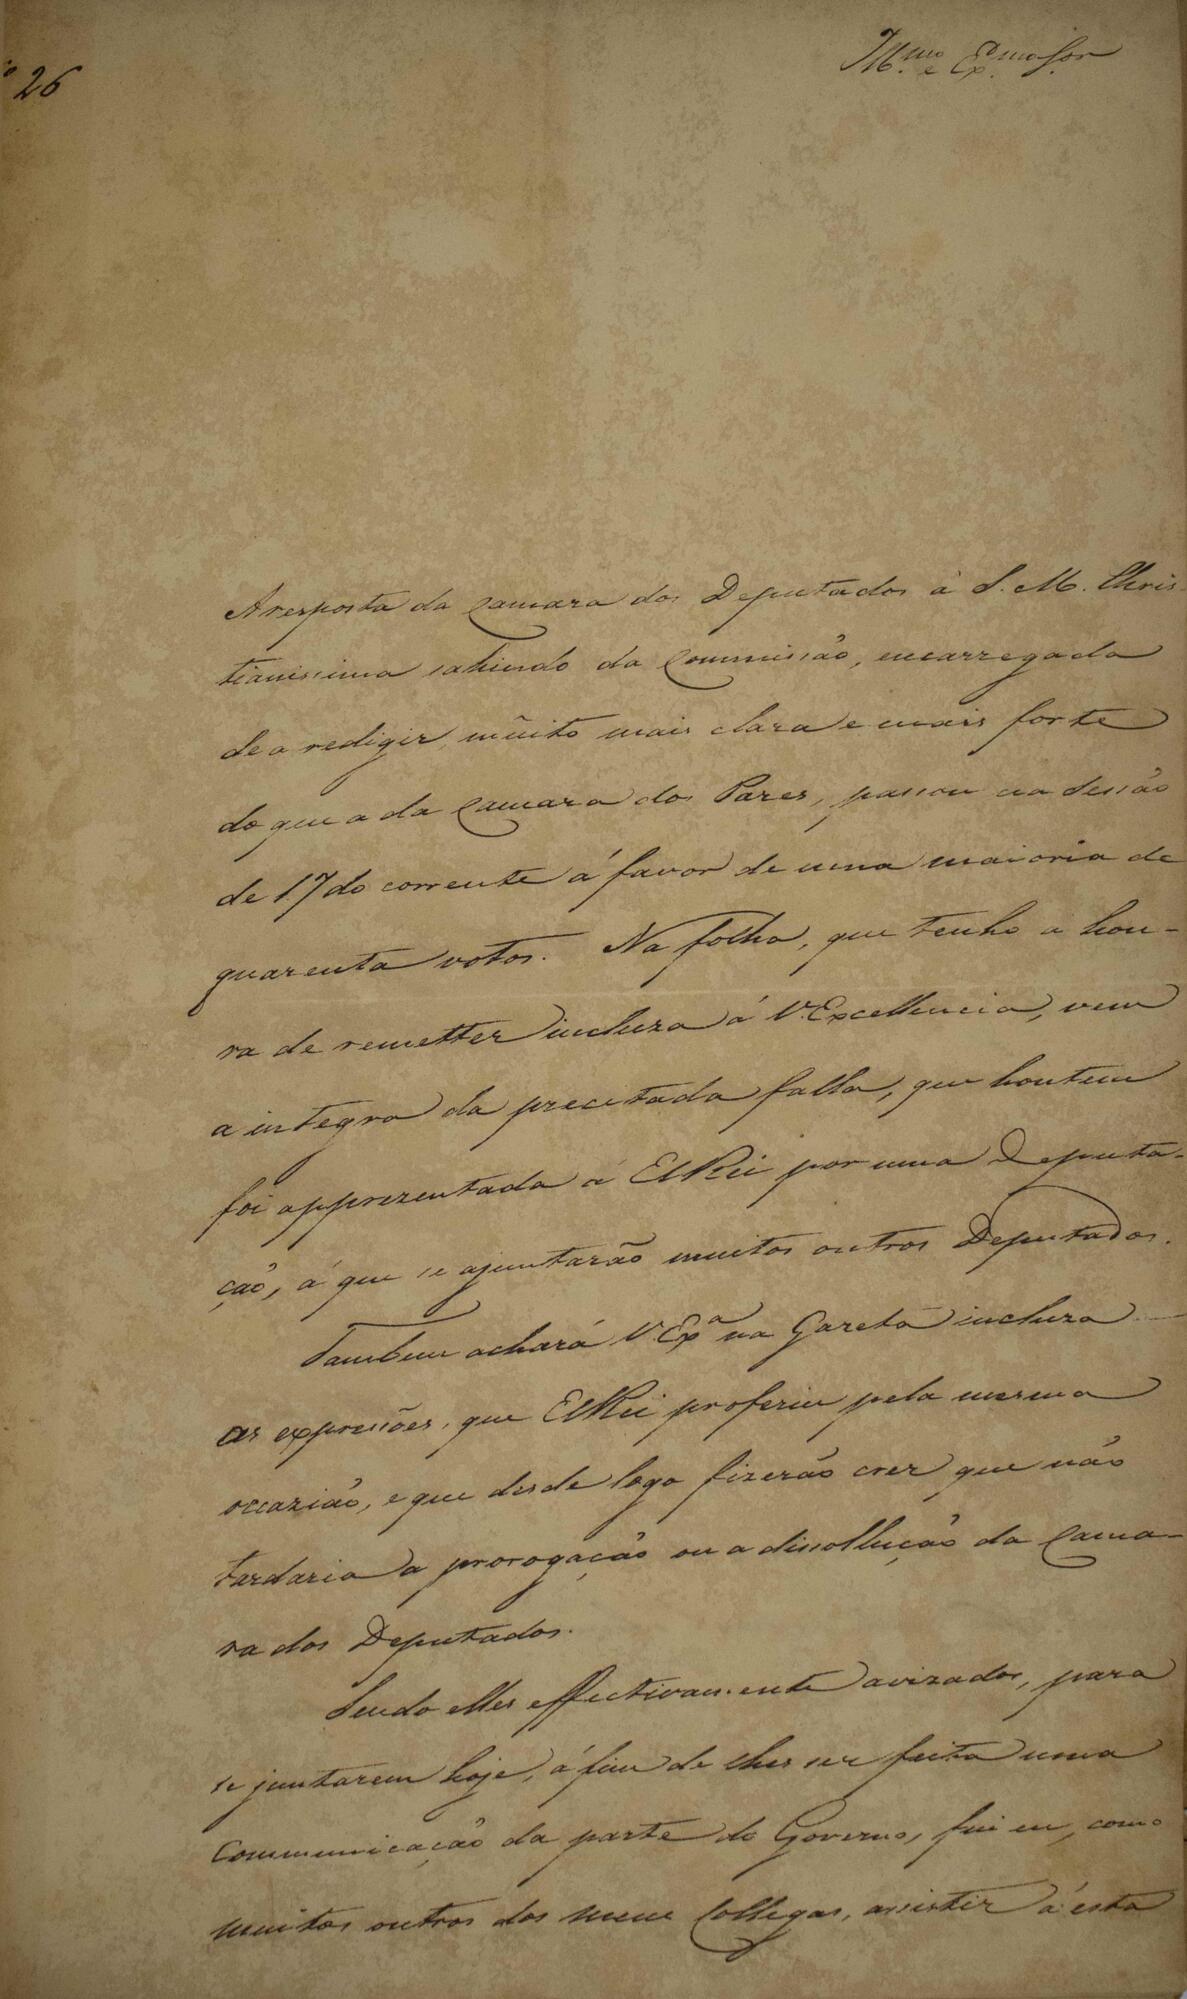 Nº 26
Illmo. e Exmo. Sor.
A resposta da Camara dos Deputados à S. M. Chris-
tianissima sahindo da Commissão, encarregada
de a redigir, muito mais clara e mais forte
do que a da Camara dos Pares, passou na Sessão
de 17 do corrente á favor de uma maioria de
quarenta votos. Na folha, que tenho a hon-
ra de remetter incluza á V. Excellencia, vem
a integra da precitada falla, que hontem
foi apprezentada á ElRei por uma Deputa-
ção, á que se ajuntarão muitos outros Deputados.
Tambem achará V. Exª na Gazeta incluza
as expressões, que ElRei proferiu pela mesma
occazião, e que desde logo fizerão crer que não
tardaria a prorogação ou a dissollução da Cama-
ra dos Deputados.
Sendo elles effectivamente avizados, para
se juntarem hoje, á fim de lhes ser feita uma
Communicação da parte do Governo, fui eu, como
muitos outros dos meus Collegas, assistir á esta